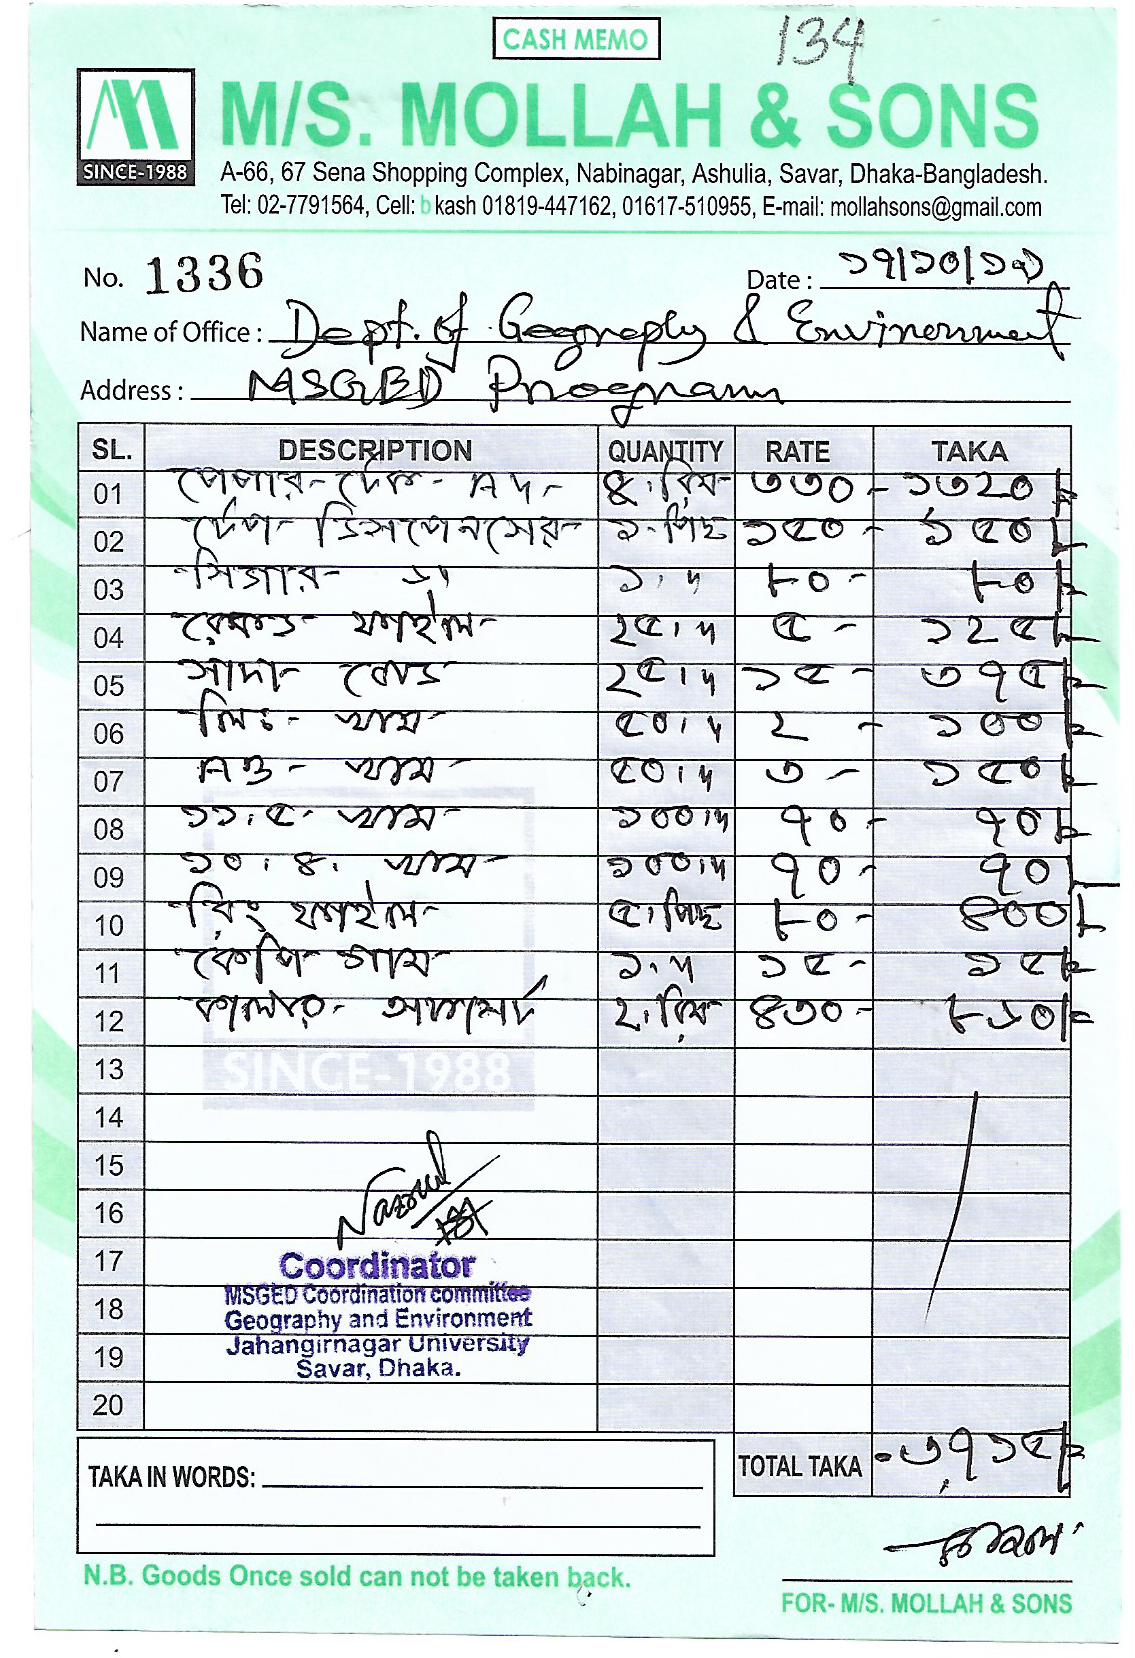 CASH MEMO
134
M/S. MOLLAH & SONS
SINCE-1988
A-66, 67 Sena Shopping Complex, Nabinagar, Ashulia, Savar, Dhaka-Bangladesh.
Tel: 02-7791564, Cell: bkash 01819-447162, 01617-510955, E-mail: mollahsons@gmail.com
No. 1336 Date : ১৭/১০/১৯
Name of Office : Dept. of Geography & Environment
Address : MSGED Program
SL. DESCRIPTION QUANTITY RATE TAKA
01 পেপার- টেক- A4- ৪. রিম- ৩৩০- ১৩২০/=
02 টেপ- ডিসপেনসের- ১- পিছ ১৫০- ১৫০/=
03 সিজার- ১. " ৮০- ৮০/=
04 ফাইল- ২৫. " ৫- ১২৫/=
05 সাদা- বোর্ড ২৫. " ১৫- ৩৭৫/=
06 খাম- ৫০. " ২- ১০০/=
07 A3- খাম- ৫০. " ৩- ১৫০/=
08 ১১.৫- খাম- ১০০. " ৭০- ৭০/=
09 ১০.৪. খাম- ১০০. " ৭০- ৭০/=
10 রিং ফাইল- ৫. পিছ ৮০- ৪০০/=
11 গাম- ১. " ১৫- ১৫/=
12 কালার- অফসেট ২. রিম- ৪৩০- ৮৬০/=
13
SINCE-1988
14
15
16
Nazrul
17
Coordinator
MSGED Coordination committee
18
Geography and Environment
19
Jahangirnagar University
Savar, Dhaka.
20
TOTAL TAKA ৩,৭১৫/=
TAKA IN WORDS:
N.B. Goods Once sold can not be taken back.
FOR- M/S. MOLLAH & SONS